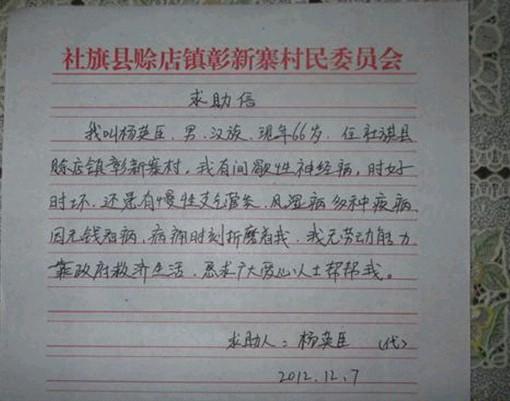 社旗县赊店镇彰新寨村民委员会
求助信
我叫杨英臣，男，汉族，现年66岁，住社旗县
赊店镇彰新寨村，我有间歇性神经病，时好
时坏，还患有慢性支气管炎，风湿病多种疾病，
因无钱看病，病痛时刻折磨着我，我无劳动能力
靠政府救济生活，恳求广大爱心人士帮帮我。
求助人：杨英臣（代）
2012.12.7